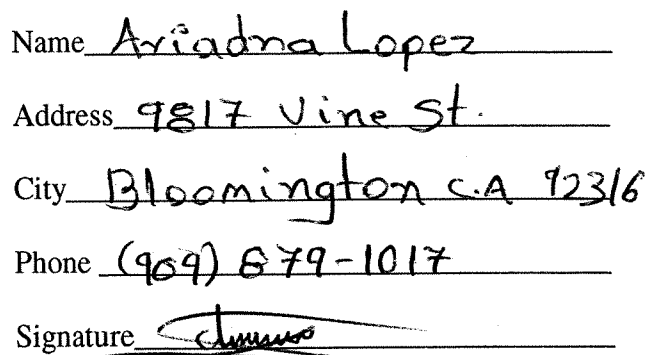 Name Ariadna Lopez
Address 9817 Vine St.
City Bloomington C.A 92316
Phone (909) 879-1017
Signature